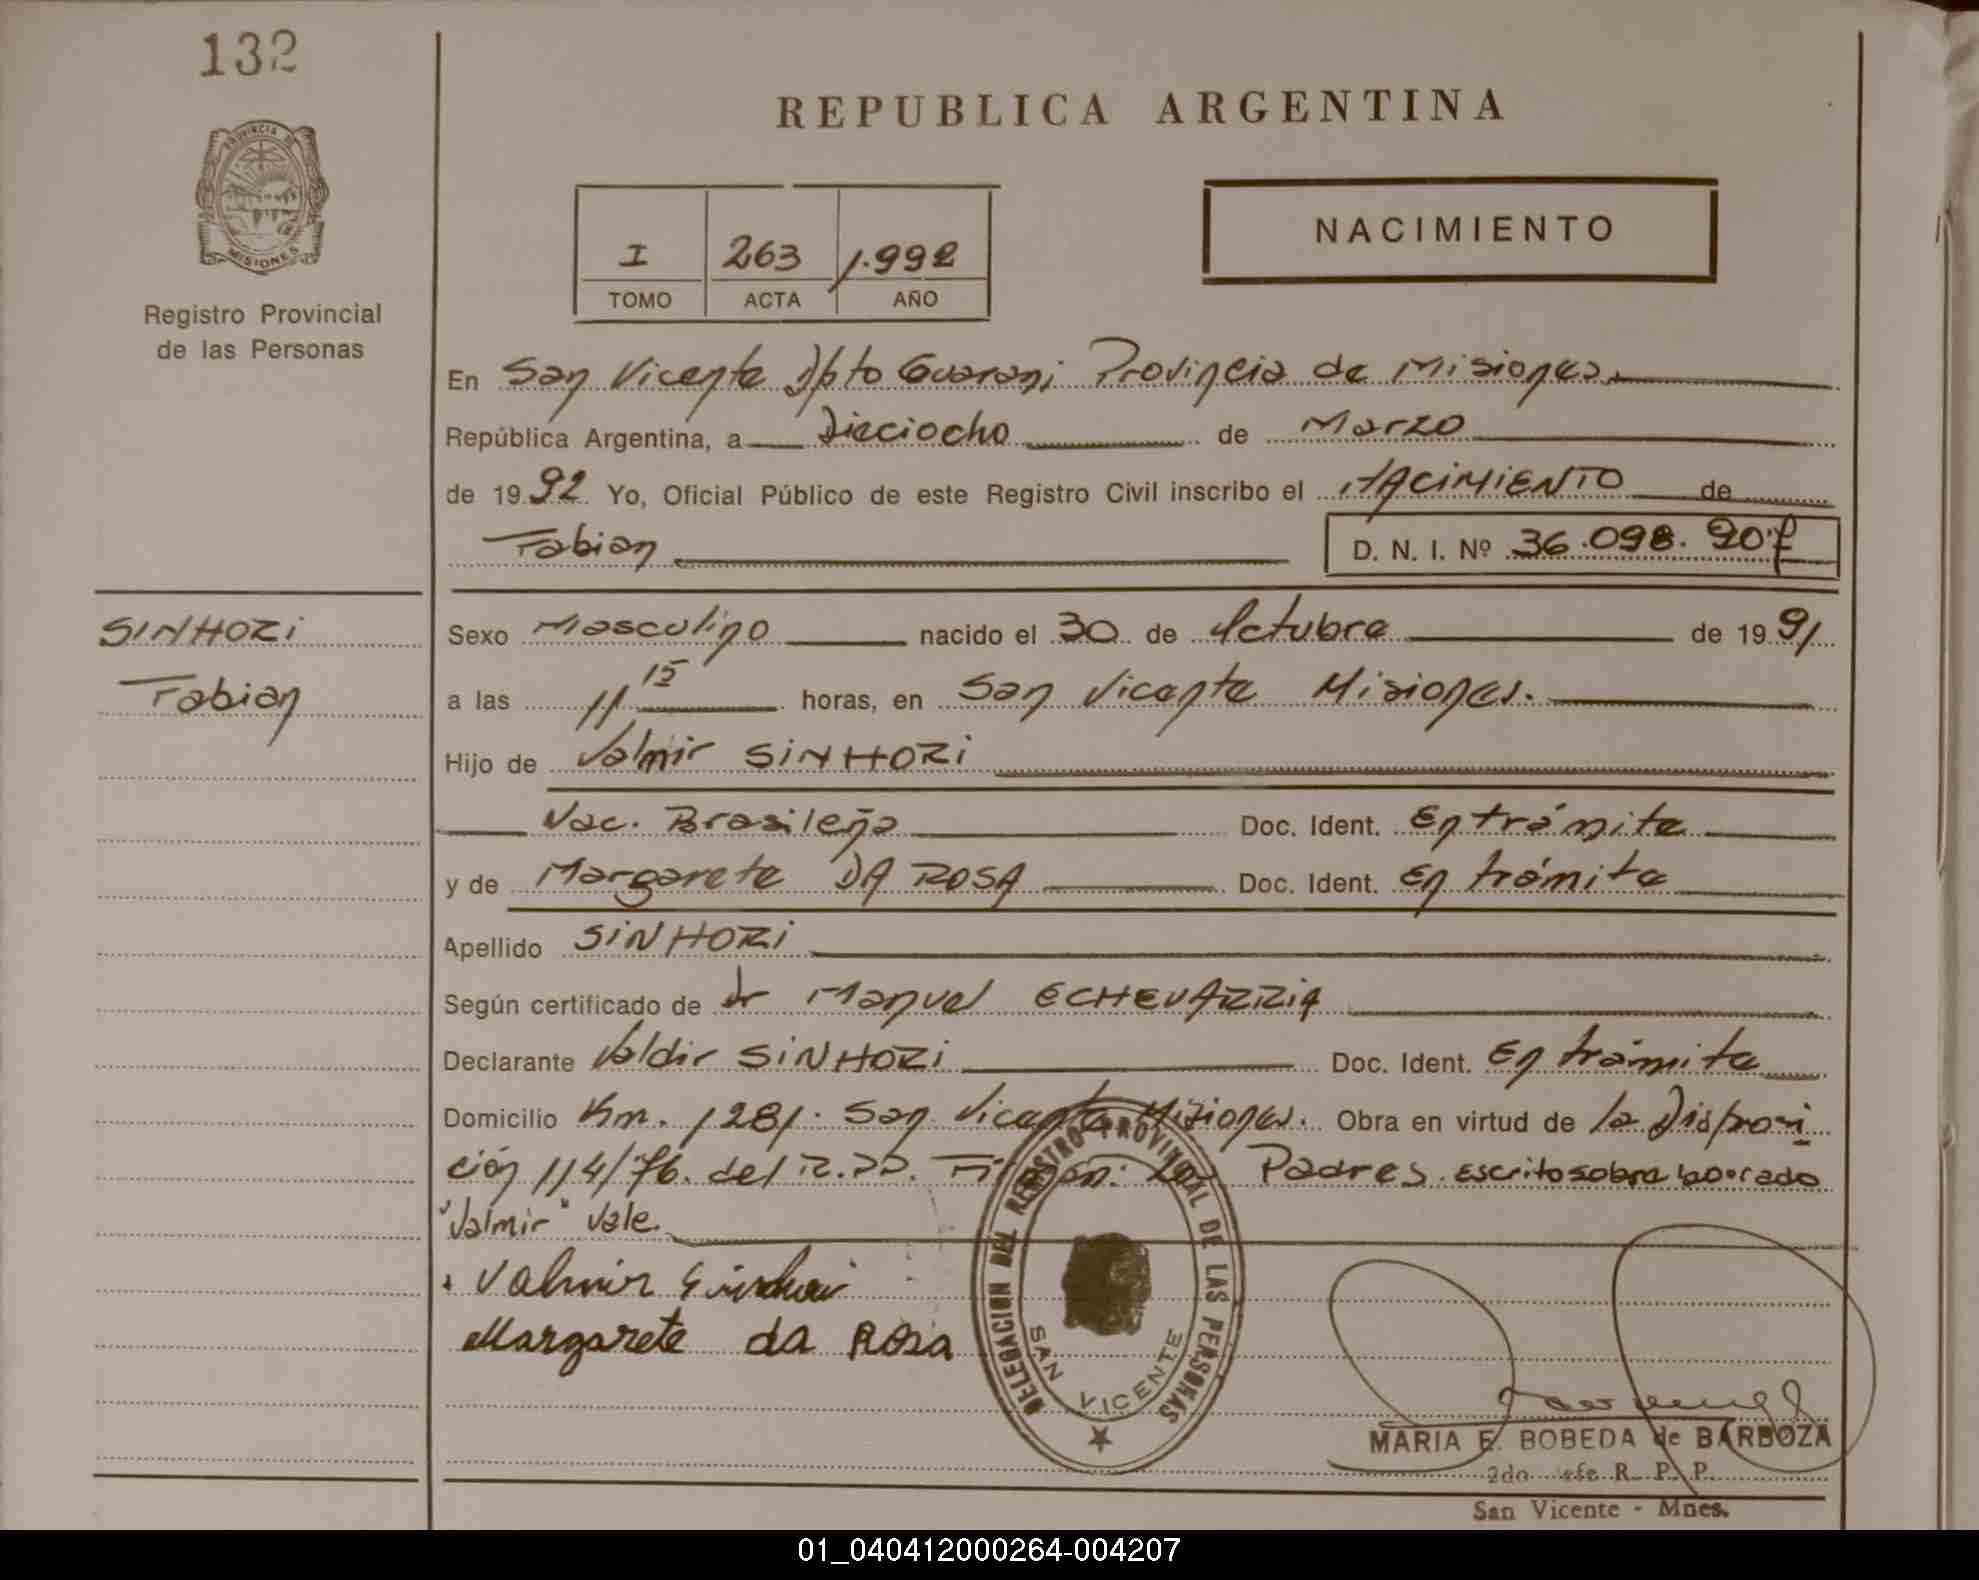 132
REPUBLICA ARGENTINA
PROVINCIA DE
MISIONES
Registro Provincial
de las Personas
I 263 1.992
TOMO ACTA AÑO
NACIMIENTO
En San Vicente Dpto Guarani Provincia de Misiones.
República Argentina, a Dieciocho de Marzo
de 1992 Yo, Oficial Público de este Registro Civil inscribo el NACIMIENTO de
Fabian D. N. I. Nº 36.098.907
SINHORI
Fabian
Sexo Masculino nacido el 30 de Octubre de 1991
a las 11 15 horas, en San Vicente Misiones.
Hijo de Valmir SINHORI
Nac. Brasileña Doc. Ident. En trámite
y de Margarete DA ROSA Doc. Ident. En trámite
Apellido SINHORI
Según certificado de dr Manuel ECHEVARRIA
Declarante Valdir SINHORI Doc. Ident. En trámite
Domicilio Km. 1281. San Vicente Misiones. Obra en virtud de la Disposi
ción 114/76. del R.PP. Firman: Los Padres. escrito sobre borrado
"Valmir" Vale.
Valmir Sinhori
Margarete da Rosa
DELEGACION DEL REGISTRO PROVINCIAL DE LAS PERSONAS
SAN VICENTE
MARIA E. BOBEDA de BARBOZA
2do Jefe R. P. P.
San Vicente - Mnes.
01_040412000264-004207